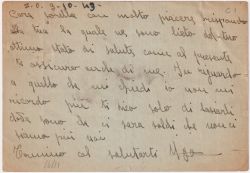 Z.O. 9-10-43-
Cara sorella con molto piacere rispondo
la tua la quale ne sono lieto del tuo
ottimo stato di salute come al presente
ti assicuro anche di me. In riguardo
a quello che mi chiedi io non mi
ricordo più ti dico solo di lasciarli
dove sono che ci sarà soldi che non ci
siamo più noi
Termino col salutarti